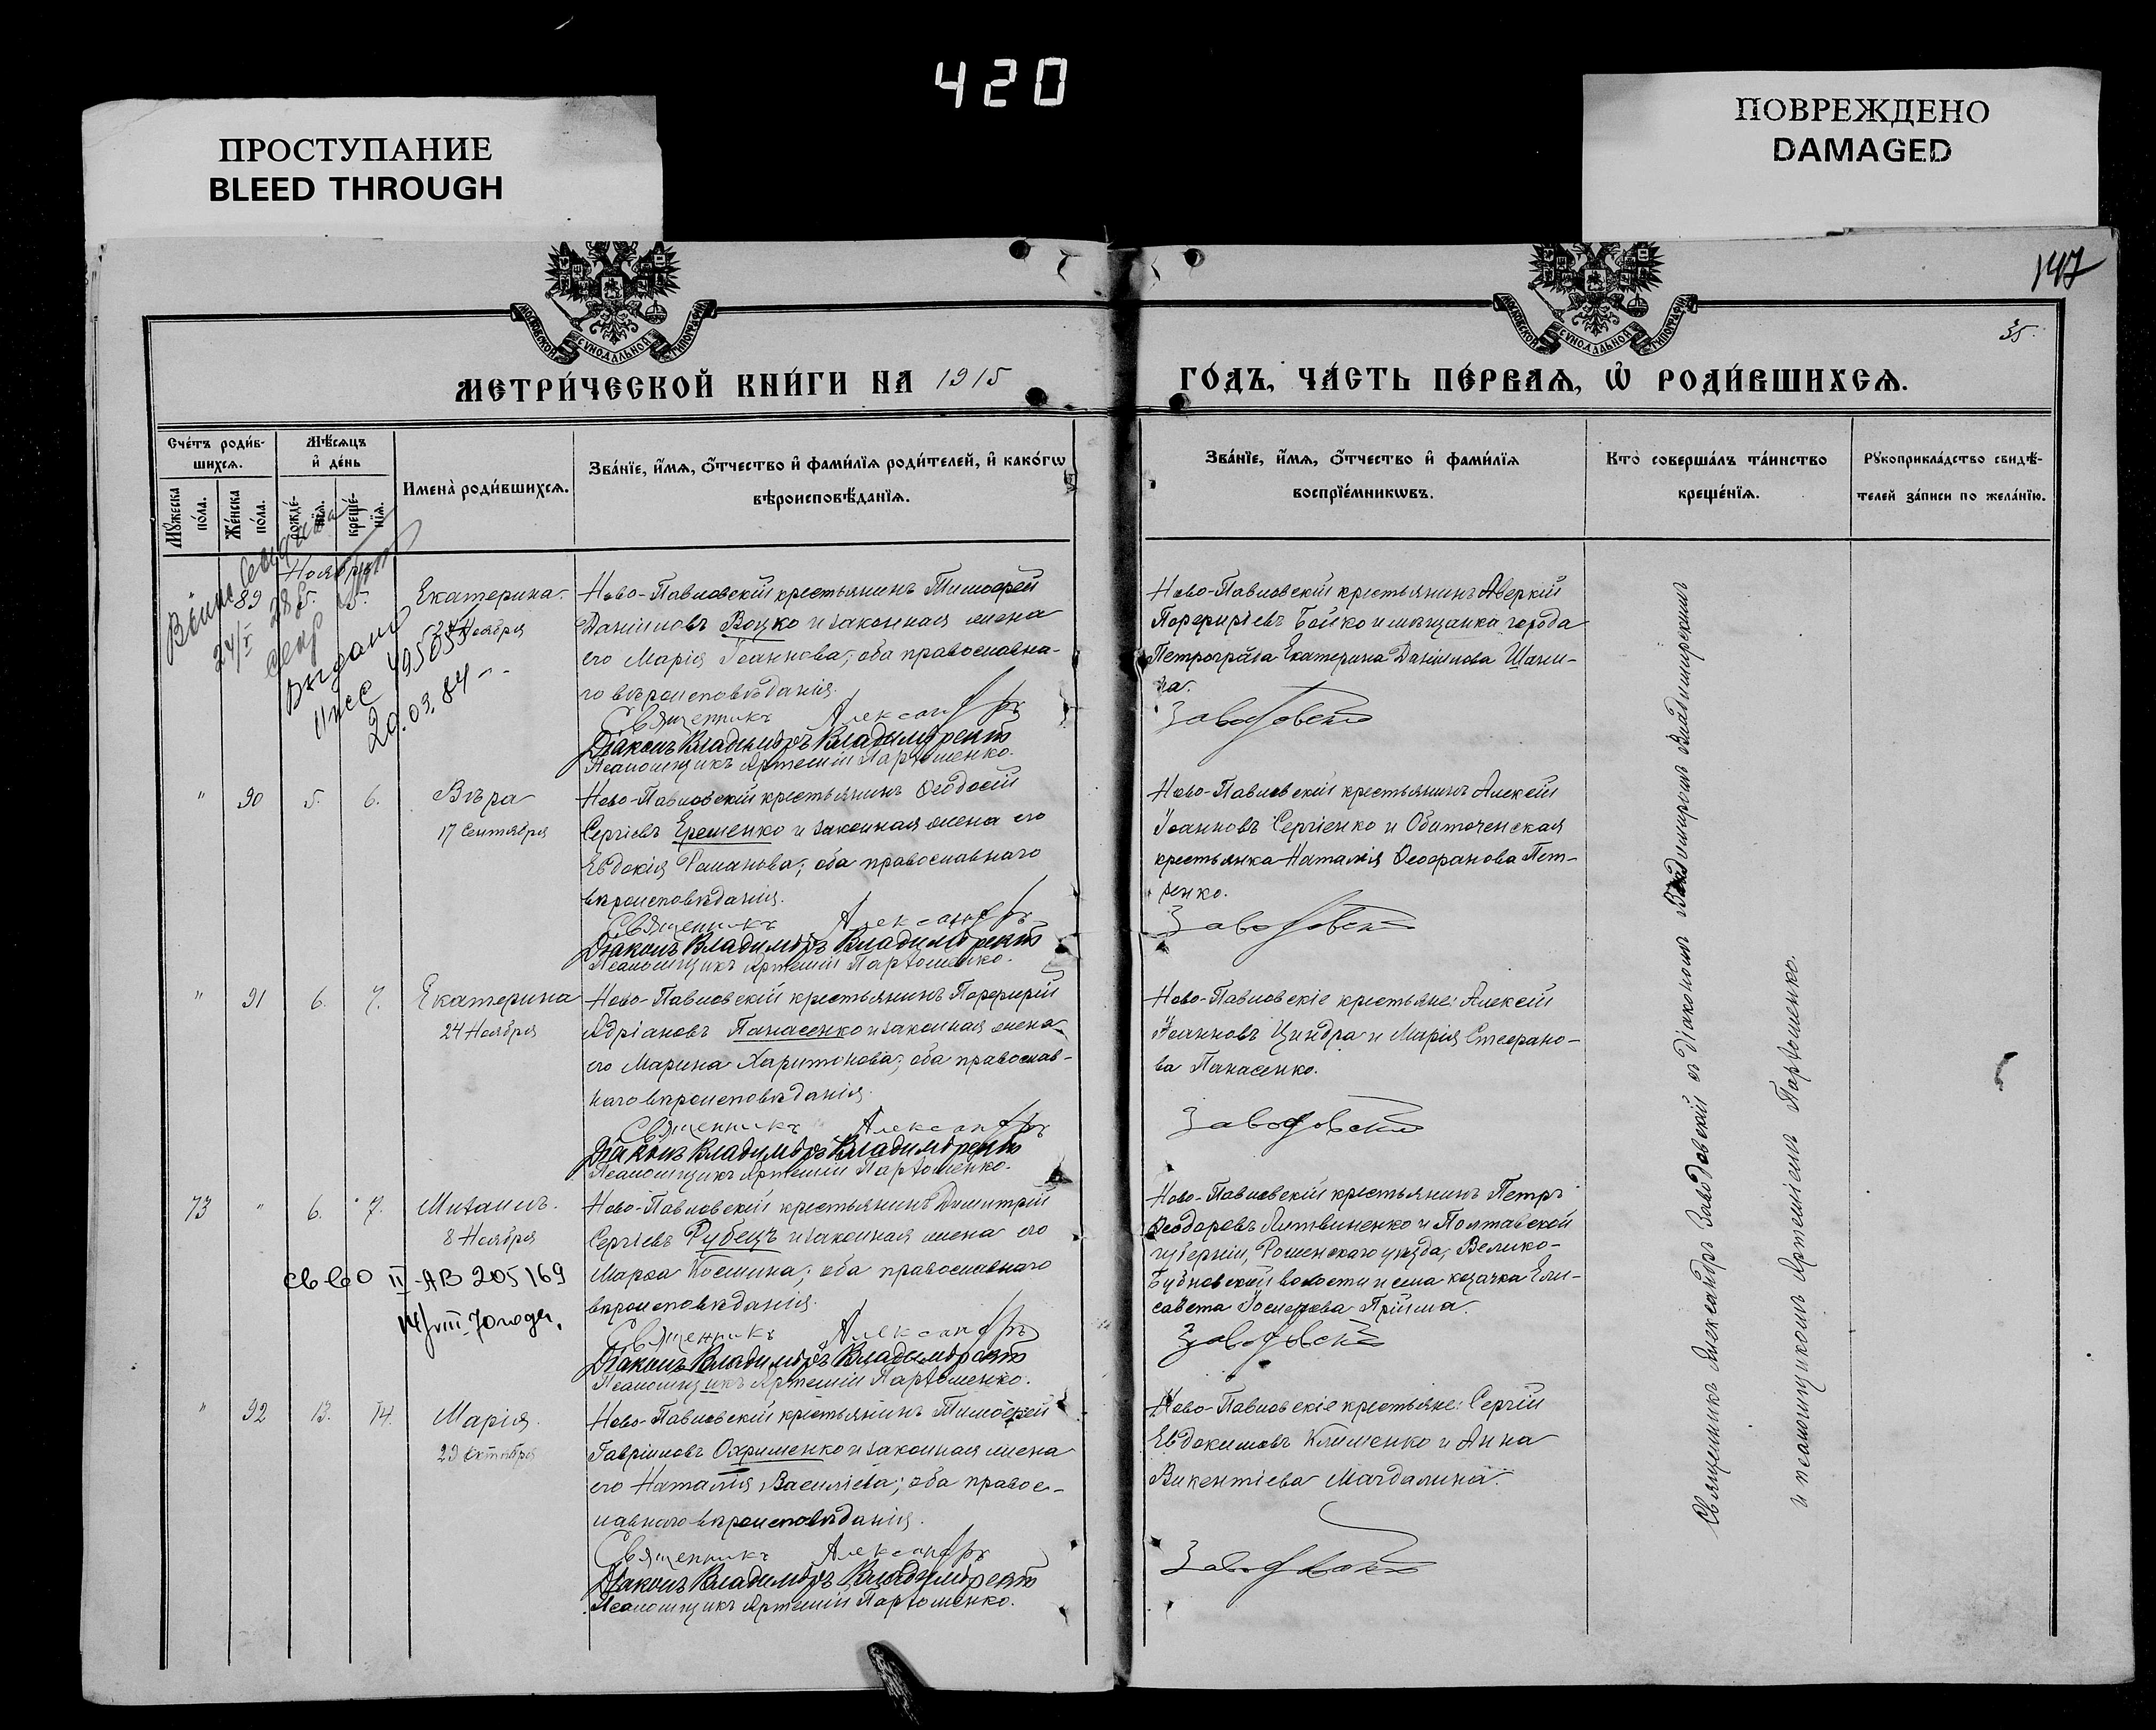 420
ПРОСТУПАНИЕ
BLEED THROUGH
ПОВРЕЖДЕНО
DAMAGED
147
35.
МОСКОВСКОЙ СѴНОДАЛЬНОЙ ТИПОГРАФІИ
МОСКОВСКОЙ СѴНОДАЛЬНОЙ ТИПОГРАФІИ
МЕТРИ́ЧЕСКОЙ КНИ́ГИ НА 1915
ГО́ДЪ, ЧА́СТЬ ПЕ́РВАѦ, Ѡ҆ РОДИ́ВШИХСѦ.
Сче́тъ роди́в-
шихсѧ.
Мꙋ́жеска
по́ла.
Же́нска
по́ла.
Мѣ́сѧцъ
и҆ де́нь
рожде́-
нїѧ.
креще́-
нїѧ.
Имена̀ роди́вшихсѧ.
Зва́нїе, и҆́мѧ, ѻ҆́тчество и҆ фами́лїѧ роди́телей, и҆ како́гѡ
вѣроисповѣ́данїѧ.
Зва́нїе, и҆́мѧ, ѻ҆́тчество и҆ фами́лїѧ
воспрїе́мникѡвъ.
Кто̀ соверша́лъ та́инство
креще́нїѧ.
Рꙋкоприкла́дство свидѣ́-
телей за́писи по жела́нїю.
Ноября
89 5. 5. Екатерина.
24 Ноября
Выдано
495055
20.03.84
Ново-Павловскій крестьянинъ Тимоѳей
Даніиловъ Воцко и законная жена
его Марія Іоаннова; оба православна-
го вѣроисповѣданія.
Священникъ Александръ
Діаконъ Владиміръ Владимірскій
Псаломщикъ Артемій Пархоменко.
Ново-Павловскій крестьянинъ Аверкій
Порфиріевъ Бойко и мѣщанка города
Петрограда Екатерина Даніилова
на.
Заводовскій
" 90 5. 6. Вѣра
17 Сентября
Ново-Павловскій крестьянинъ Ѳеодосій
Сергіевъ Ерешенко и законная жена его
Евдокія Романова; оба православнаго
вѣроисповѣданія.
Священникъ Александръ
Діаконъ Владиміръ Владимірскій
Псаломщикъ Артемій Пархоменко.
Ново-Павловскій крестьянинъ Алексій
Іоанновъ Сергіенко и Обиточенская
крестьянка Наталія Ѳеофанова Пет-
ренко.
Заводовскій
" 91 6. 7. Екатерина
24 Ноября
Ново-Павловскій крестьянинъ Порфирій
Адріановъ Панасенко и законная жена
его Марина Харитонова; оба православ-
наго вѣроисповѣданія.
Священникъ Александръ
Діаконъ Владиміръ Владимірскій
Псаломщикъ Артемій Пархоменко.
Ново-Павловскіе крестьяне: Алексій
Іоанновъ Циндра и Марія Стефано-
ва Панасенко.
Заводовскій
73 " 6. 7. Михаилъ.
8 Ноября
св-во II-АВ 205169
14/VIII-70 года.
Ново-Павловскій крестьянинъ Димитрій
Сергіевъ Рубецъ и законная жена его
Марѳа Космина; оба православнаго
вѣроисповѣданія.
Священникъ Александръ
Діаконъ Владиміръ Владимірскій
Псаломщикъ Артемій Пархоменко.
Ново-Павловскій крестьянинъ Петръ
Ѳеодоровъ Литвиненко и Полтавской
губерніи, Роменскаго уѣзда, Велико-
Бубновской волости и села козачка Ели-
савета Іосифова Прійма.
Заводовскій
" 92 13. 14. Марія.
29 Октября
Ново-Павловскій крестьянинъ Тимоѳей
Гавріиловъ Охрименко и законная жена
его Наталія Василіева; оба правос-
лавнаго вѣроисповѣданія.
Священникъ Александръ
Діаконъ Владиміръ Владимірскій
Псаломщикъ Артемій Пархоменко.
Ново-Павловскіе крестьяне: Сергій
Евдокимовъ Клименко и Анна
Викентіева Магдалина.
Заводовскій
Священникъ Александръ Заводовскій съ Діакономъ Владиміромъ Владимірскимъ
и псаломщикомъ Артеміемъ Пархоменко.